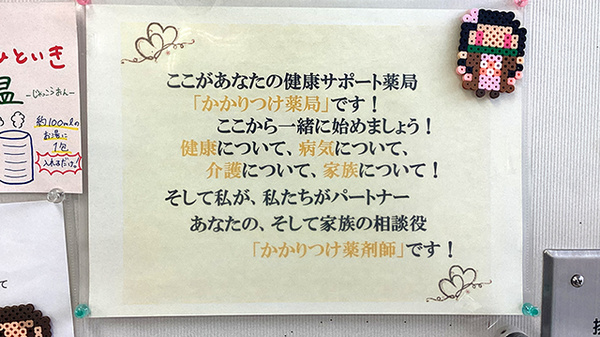 ここがあなたの健康サポート薬局
「かかりつけ薬局」です！
ここから一緒に始めましょう！
健康について、病気について、
介護について、家族について！
そして私が、私たちがパートナー
あなたの、そして家族の相談役
「かかりつけ薬剤師」です！
ひといき
温
-じゅうこうおん-
約100mlの
お湯に
1包
入れるだけ。
て